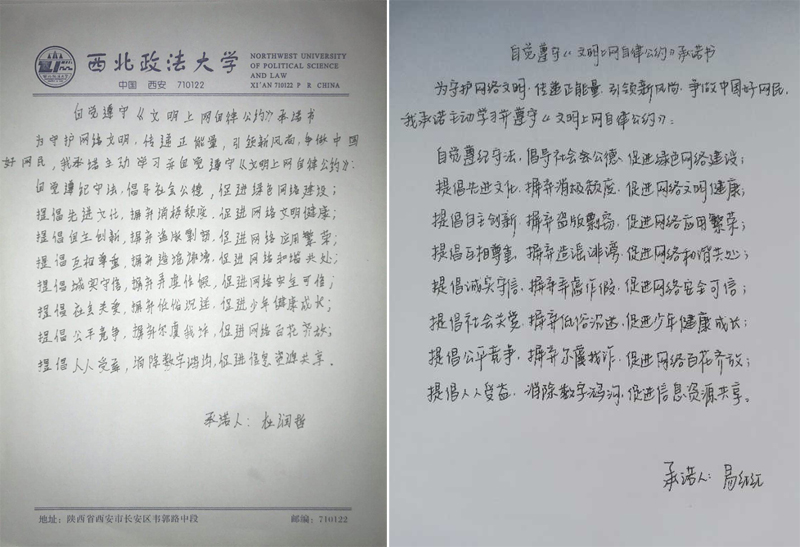 西北政法大学
NORTHWEST UNIVERSITY
OF POLITICAL SCIENCE
AND LAW
中国 西安 710122
XI'AN 710122 P R CHINA
自觉遵守《文明上网自律公约》承诺书
为守护网络文明，传递正能量，引领新风尚，争做中国
好网民，我承诺主动学习并自觉遵守《文明上网自律公约》：
自觉遵纪守法，倡导社会公德，促进绿色网络建设；
提倡先进文化，摒弃消极颓废，促进网络文明健康；
提倡自主创新，摒弃盗版剽窃，促进网络应用繁荣；
提倡互相尊重，摒弃造谣诽谤，促进网络和谐共处；
提倡诚实守信，摒弃弄虚作假，促进网络安全可信；
提倡社会关爱，摒弃低俗沉迷，促进少年健康成长；
提倡公平竞争，摒弃尔虞我诈，促进网络百花齐放；
提倡人人受益，消除数字鸿沟，促进信息资源共享。
承诺人：杜润哲
地址：陕西省西安市长安区韦郭路中段
邮编：710122
自觉遵守《文明上网自律公约》承诺书
为守护网络文明，传递正能量，引领新风尚，争做中国好网民，
我承诺主动学习并遵守《文明上网自律公约》：
自觉遵纪守法，倡导社会公德，促进绿色网络建设；
提倡先进文化，摒弃消极颓废，促进网络文明健康；
提倡自主创新，摒弃盗版剽窃，促进网络应用繁荣；
提倡互相尊重，摒弃造谣诽谤，促进网络和谐共处；
提倡诚实守信，摒弃弄虚作假，促进网络安全可信；
提倡社会关爱，摒弃低俗沉迷，促进少年健康成长；
提倡公平竞争，摒弃尔虞我诈，促进网络百花齐放；
提倡人人受益，消除数字鸿沟，促进信息资源共享。
承诺人：易红红